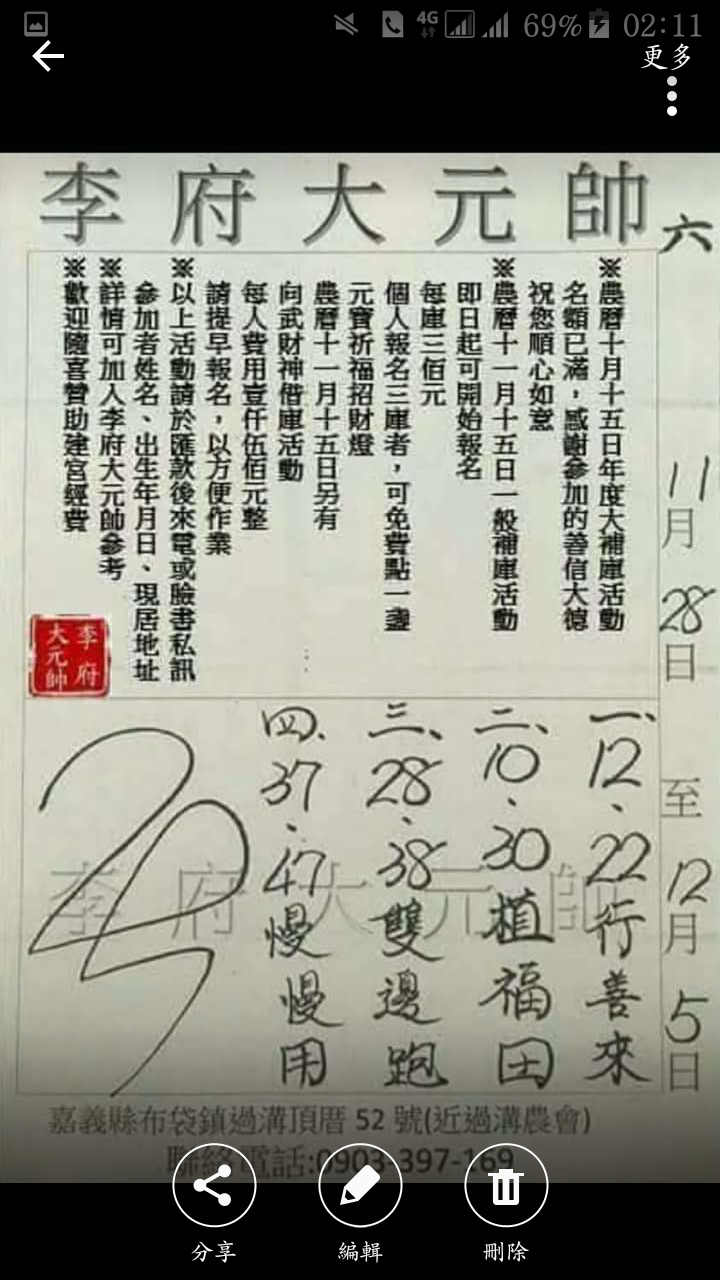 4G 69% 02:11
更多
李府大元帥
六
11月28日至12月5日
※農曆十月十五日年度大補庫活動
名額已滿，感謝參加的善信大德
祝您順心如意
※農曆十一月十五日一般補庫活動
即日起可開始報名
每庫三佰元
個人報名三庫者，可免費點一盞
元寶祈福招財燈
農曆十一月十五日另有
向武財神借庫活動
每人費用壹仟伍佰元整
請提早報名，以方便作業
※以上活動請於匯款後來電或臉書私訊
參加者姓名、出生年月日、現居地址
※詳情可加入李府大元帥參考
※歡迎隨喜贊助建宮經費
李府
大元帥
一、12、22行善來
二、10、30植福田
三、28、38雙邊跑
四、37、47慢慢用
李府大元帥
嘉義縣布袋鎮過溝頂厝 52 號(近過溝農會)
聯絡電話:0903-397-169
分享
編輯
刪除